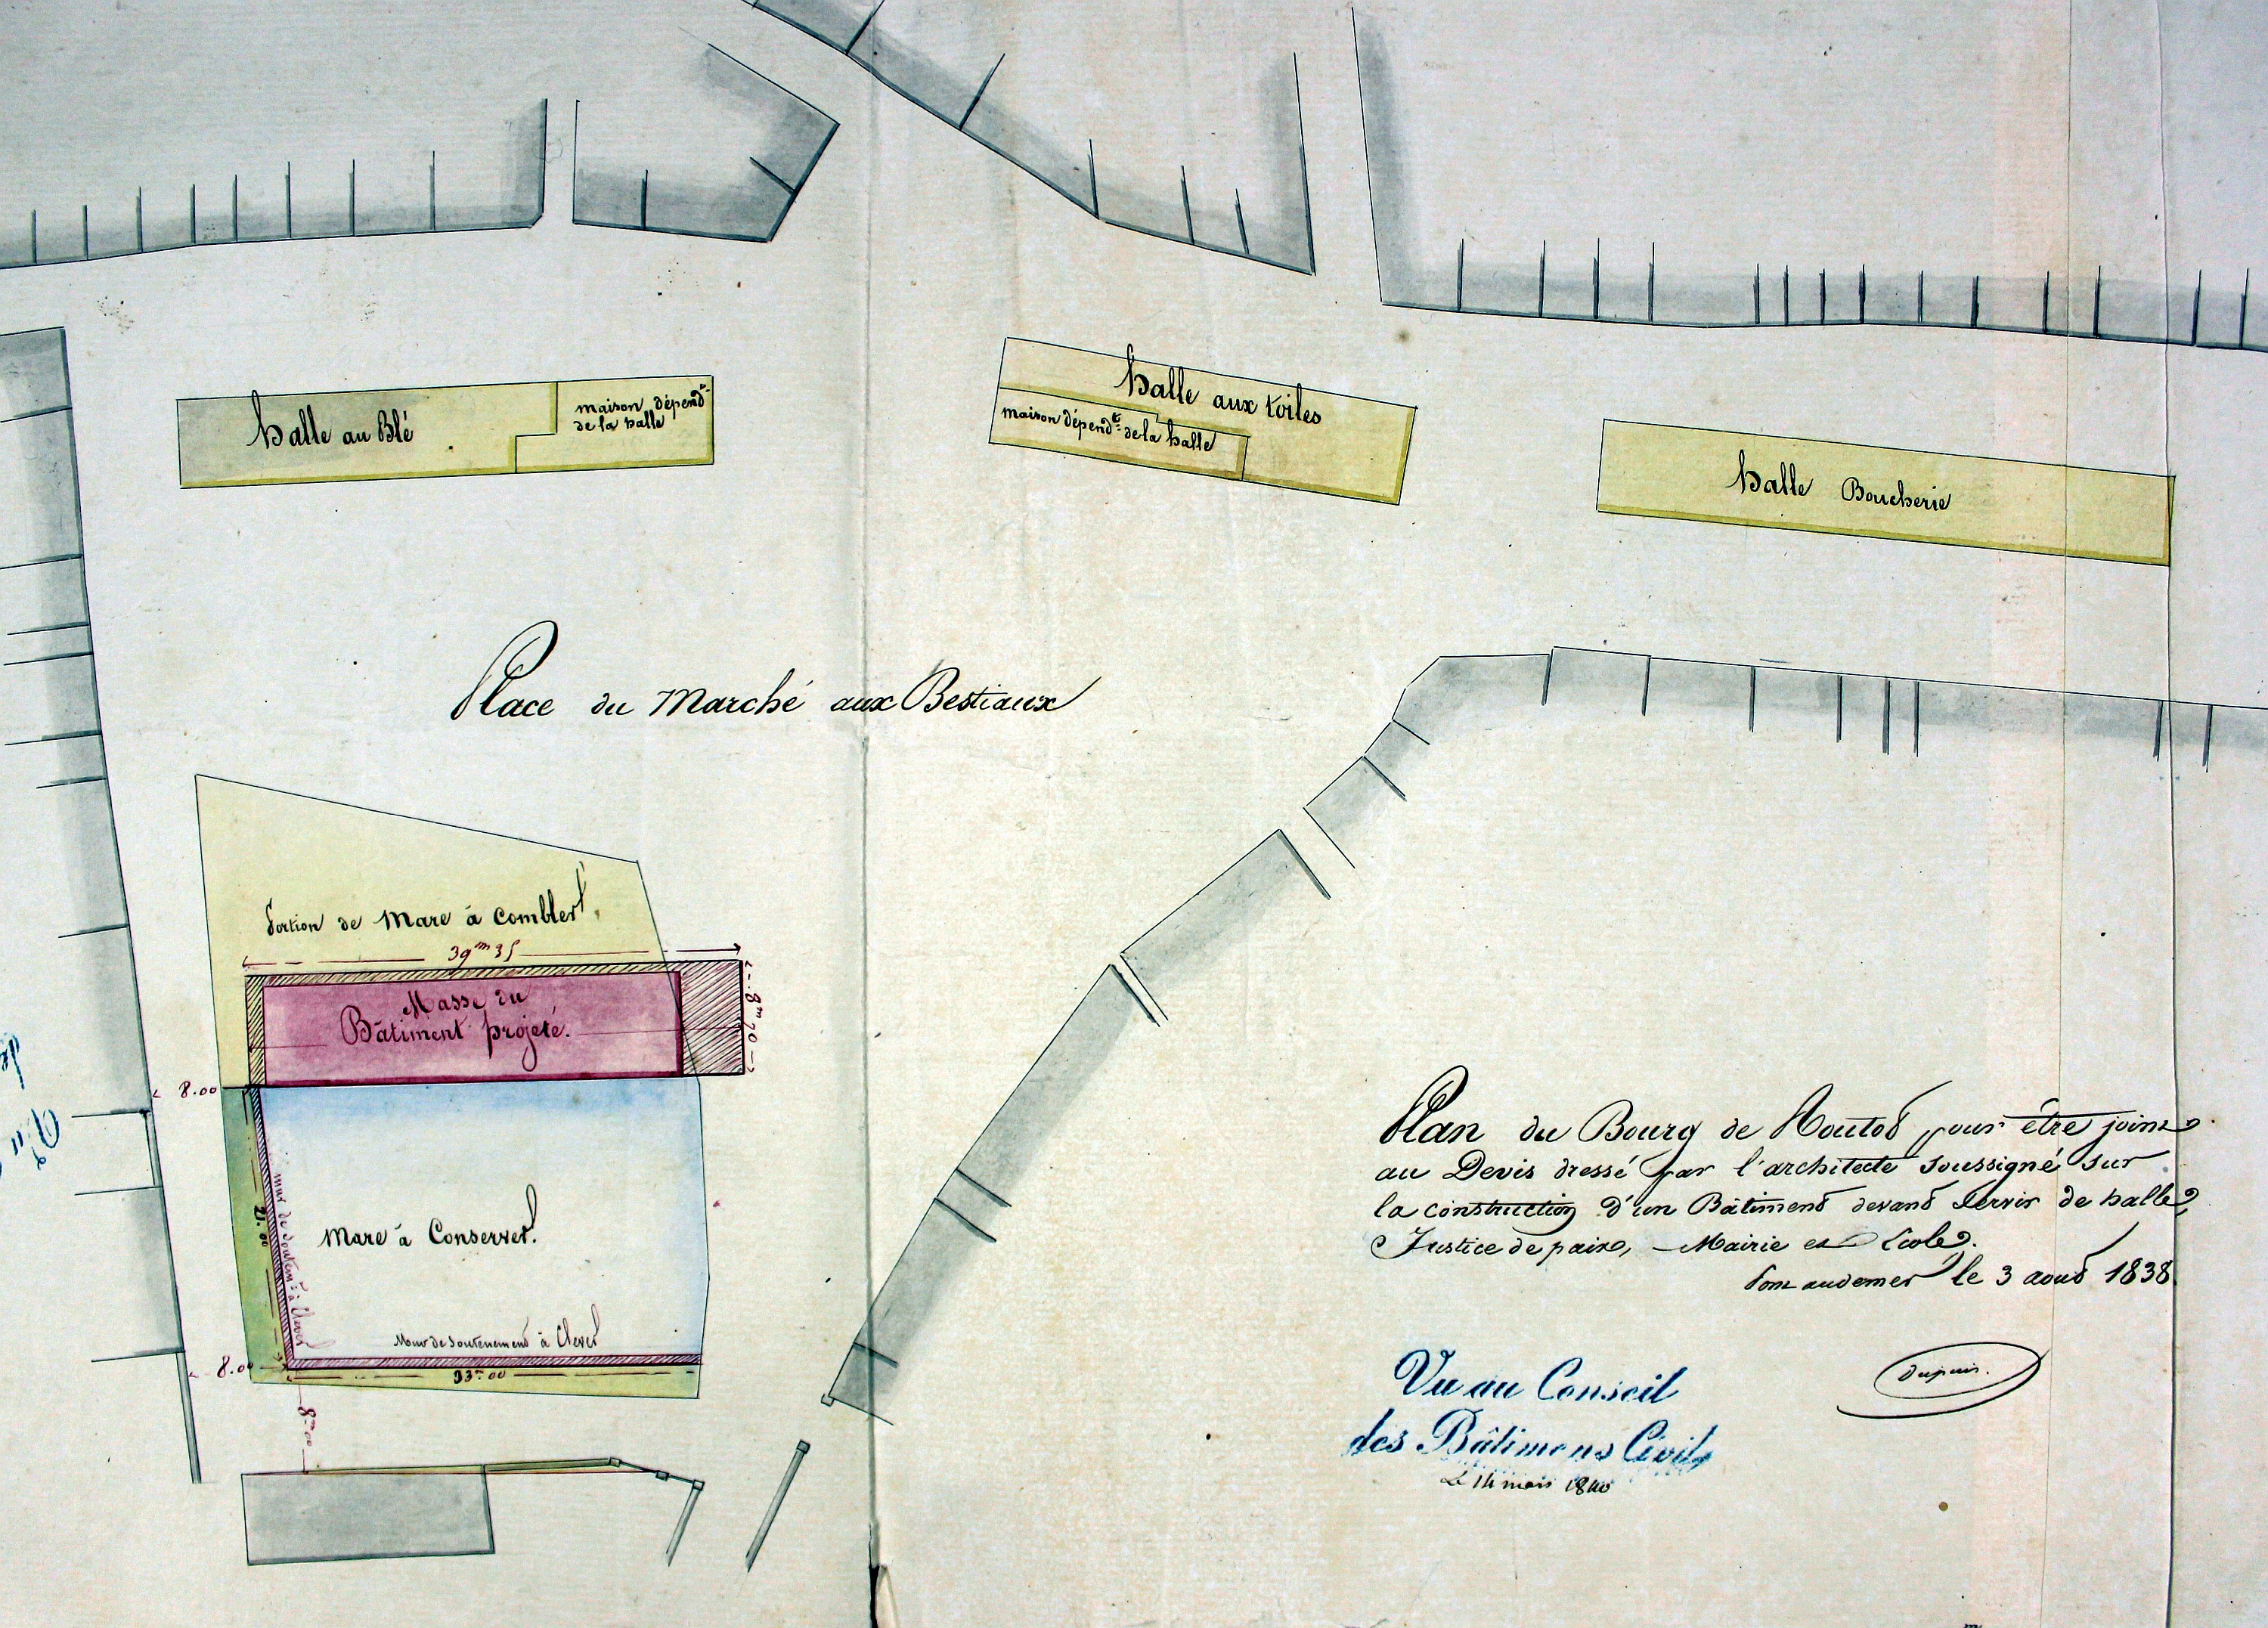 halle au Blé
maison dépend.te
de la halle
halle aux toiles
maison dépend.te de la halle
halle Boucherie
Place du Marché aux Bestiaux
Portion de Mare à combler.
39.m 35
Masse du
Bâtiment projeté.
8.m 70
8.00
21.00
mur de soutem.t à Elever
Mare à Conserver.
Mur de Soutenement à Elever
8.00
33.m 00
8.m 00
Plan du Bourg de Routot pour être joint
au Devis dressé par l'architecte soussigné sur
la construction d'un Bâtiment devant servir de halle,
Justice de paix, Mairie et Ecole.
Pont audemer le 3 aout 1838
Dupuis.
Vu au Conseil
des Bâtimens Civils
Le 14 mars 1840